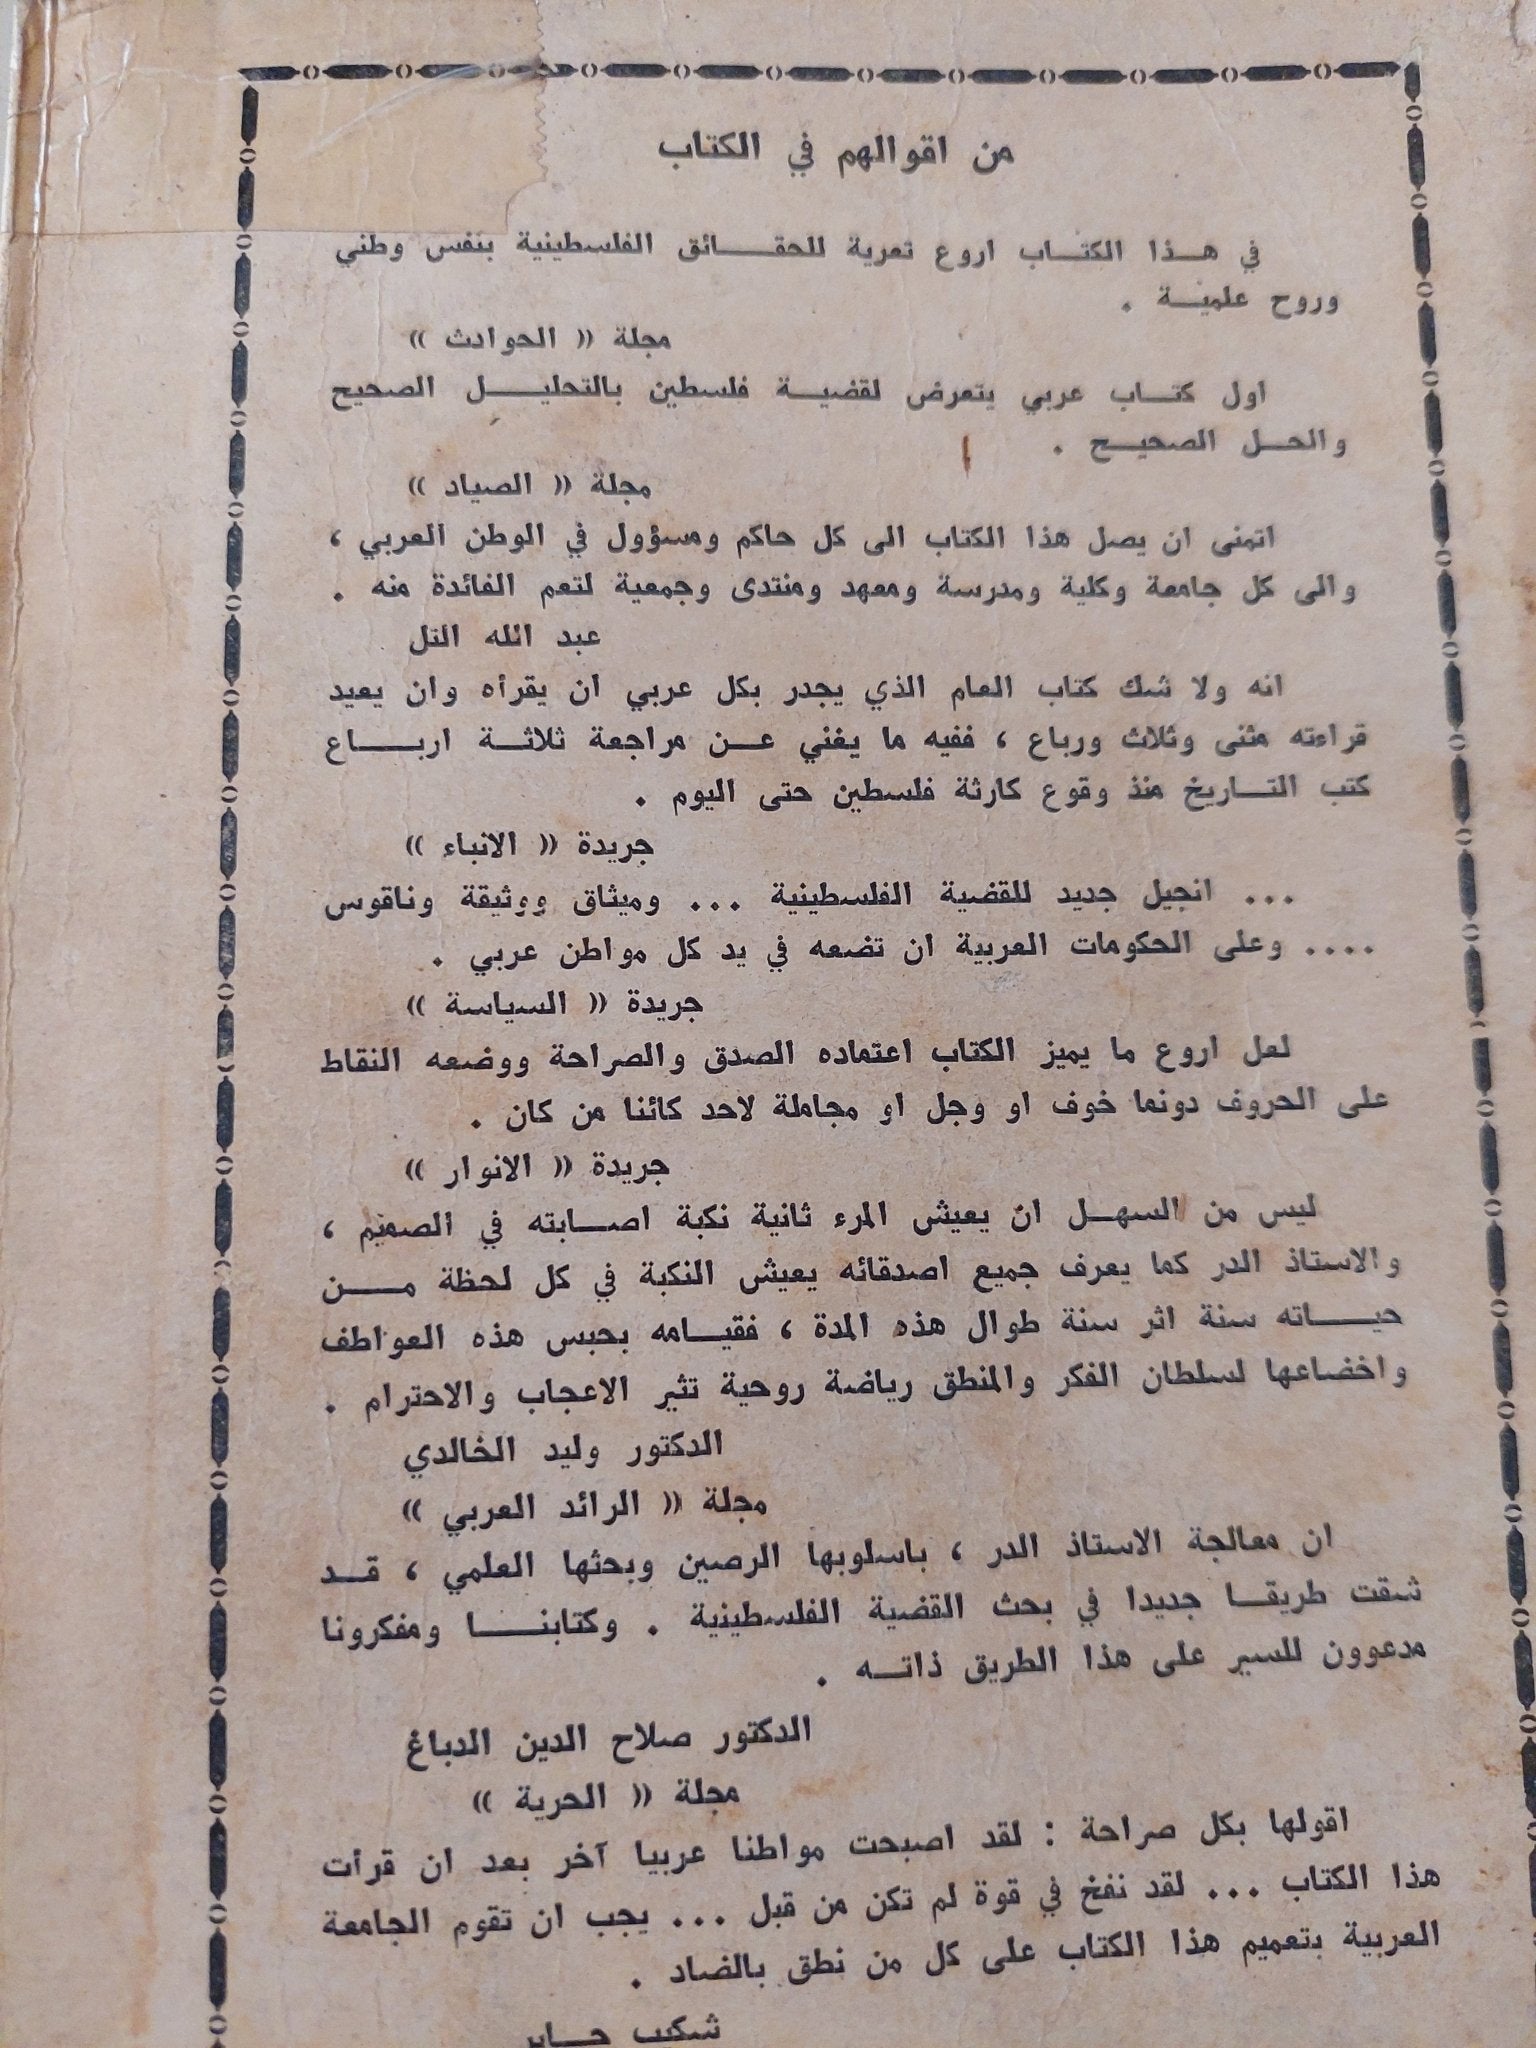 من اقوالهم في الكتاب
في هذا الكتاب اروع تعرية للحقائق الفلسطينية بنفس وطني
وروح علمية .
مجلة « الحوادث »
اول كتاب عربي يتعرض لقضية فلسطين بالتحليل الصحيح
والحل الصحيح .
مجلة « الصياد »
اتمنى ان يصل هذا الكتاب الى كل حاكم ومسؤول في الوطن العربي ،
والى كل جامعة وكلية ومدرسة ومعهد ومنتدى وجمعية لتعم الفائدة منه .
عبد الله التل
انه ولا شك كتاب العام الذي يجدر بكل عربي ان يقرأه وان يعيد
قراءته مثنى وثلاث ورباع ، ففيه ما يغني عن مراجعة ثلاثة ارباع
كتب التاريخ منذ وقوع كارثة فلسطين حتى اليوم .
جريدة « الانباء »
... انجيل جديد للقضية الفلسطينية ... وميثاق ووثيقة وناقوس
.... وعلى الحكومات العربية ان تضعه في يد كل مواطن عربي .
جريدة « السياسة »
لعل اروع ما يميز الكتاب اعتماده الصدق والصراحة ووضعه النقاط
على الحروف دونما خوف او وجل او مجاملة لاحد كائنا من كان .
جريدة « الانوار »
ليس من السهل ان يعيش المرء ثانية نكبة اصابته في الصميم ،
والاستاذ الدر كما يعرف جميع اصدقائه يعيش النكبة في كل لحظة من
حياته سنة اثر سنة طوال هذه المدة ، فقيامه بحبس هذه العواطف
واخضاعها لسلطان الفكر والمنطق رياضة روحية تثير الاعجاب والاحترام .
الدكتور وليد الخالدي
مجلة « الرائد العربي »
ان معالجة الاستاذ الدر ، باسلوبها الرصين وبحثها العلمي ، قد
شقت طريقا جديدا في بحث القضية الفلسطينية . وكتابنا ومفكرونا
مدعوون للسير على هذا الطريق ذاته .
الدكتور صلاح الدين الدباغ
مجلة « الحرية »
اقولها بكل صراحة : لقد اصبحت مواطنا عربيا آخر بعد ان قرأت
هذا الكتاب ... لقد نفخ في قوة لم تكن من قبل ... يجب ان تقوم الجامعة
العربية بتعميم هذا الكتاب على كل من نطق بالضاد .
شكيب جابر